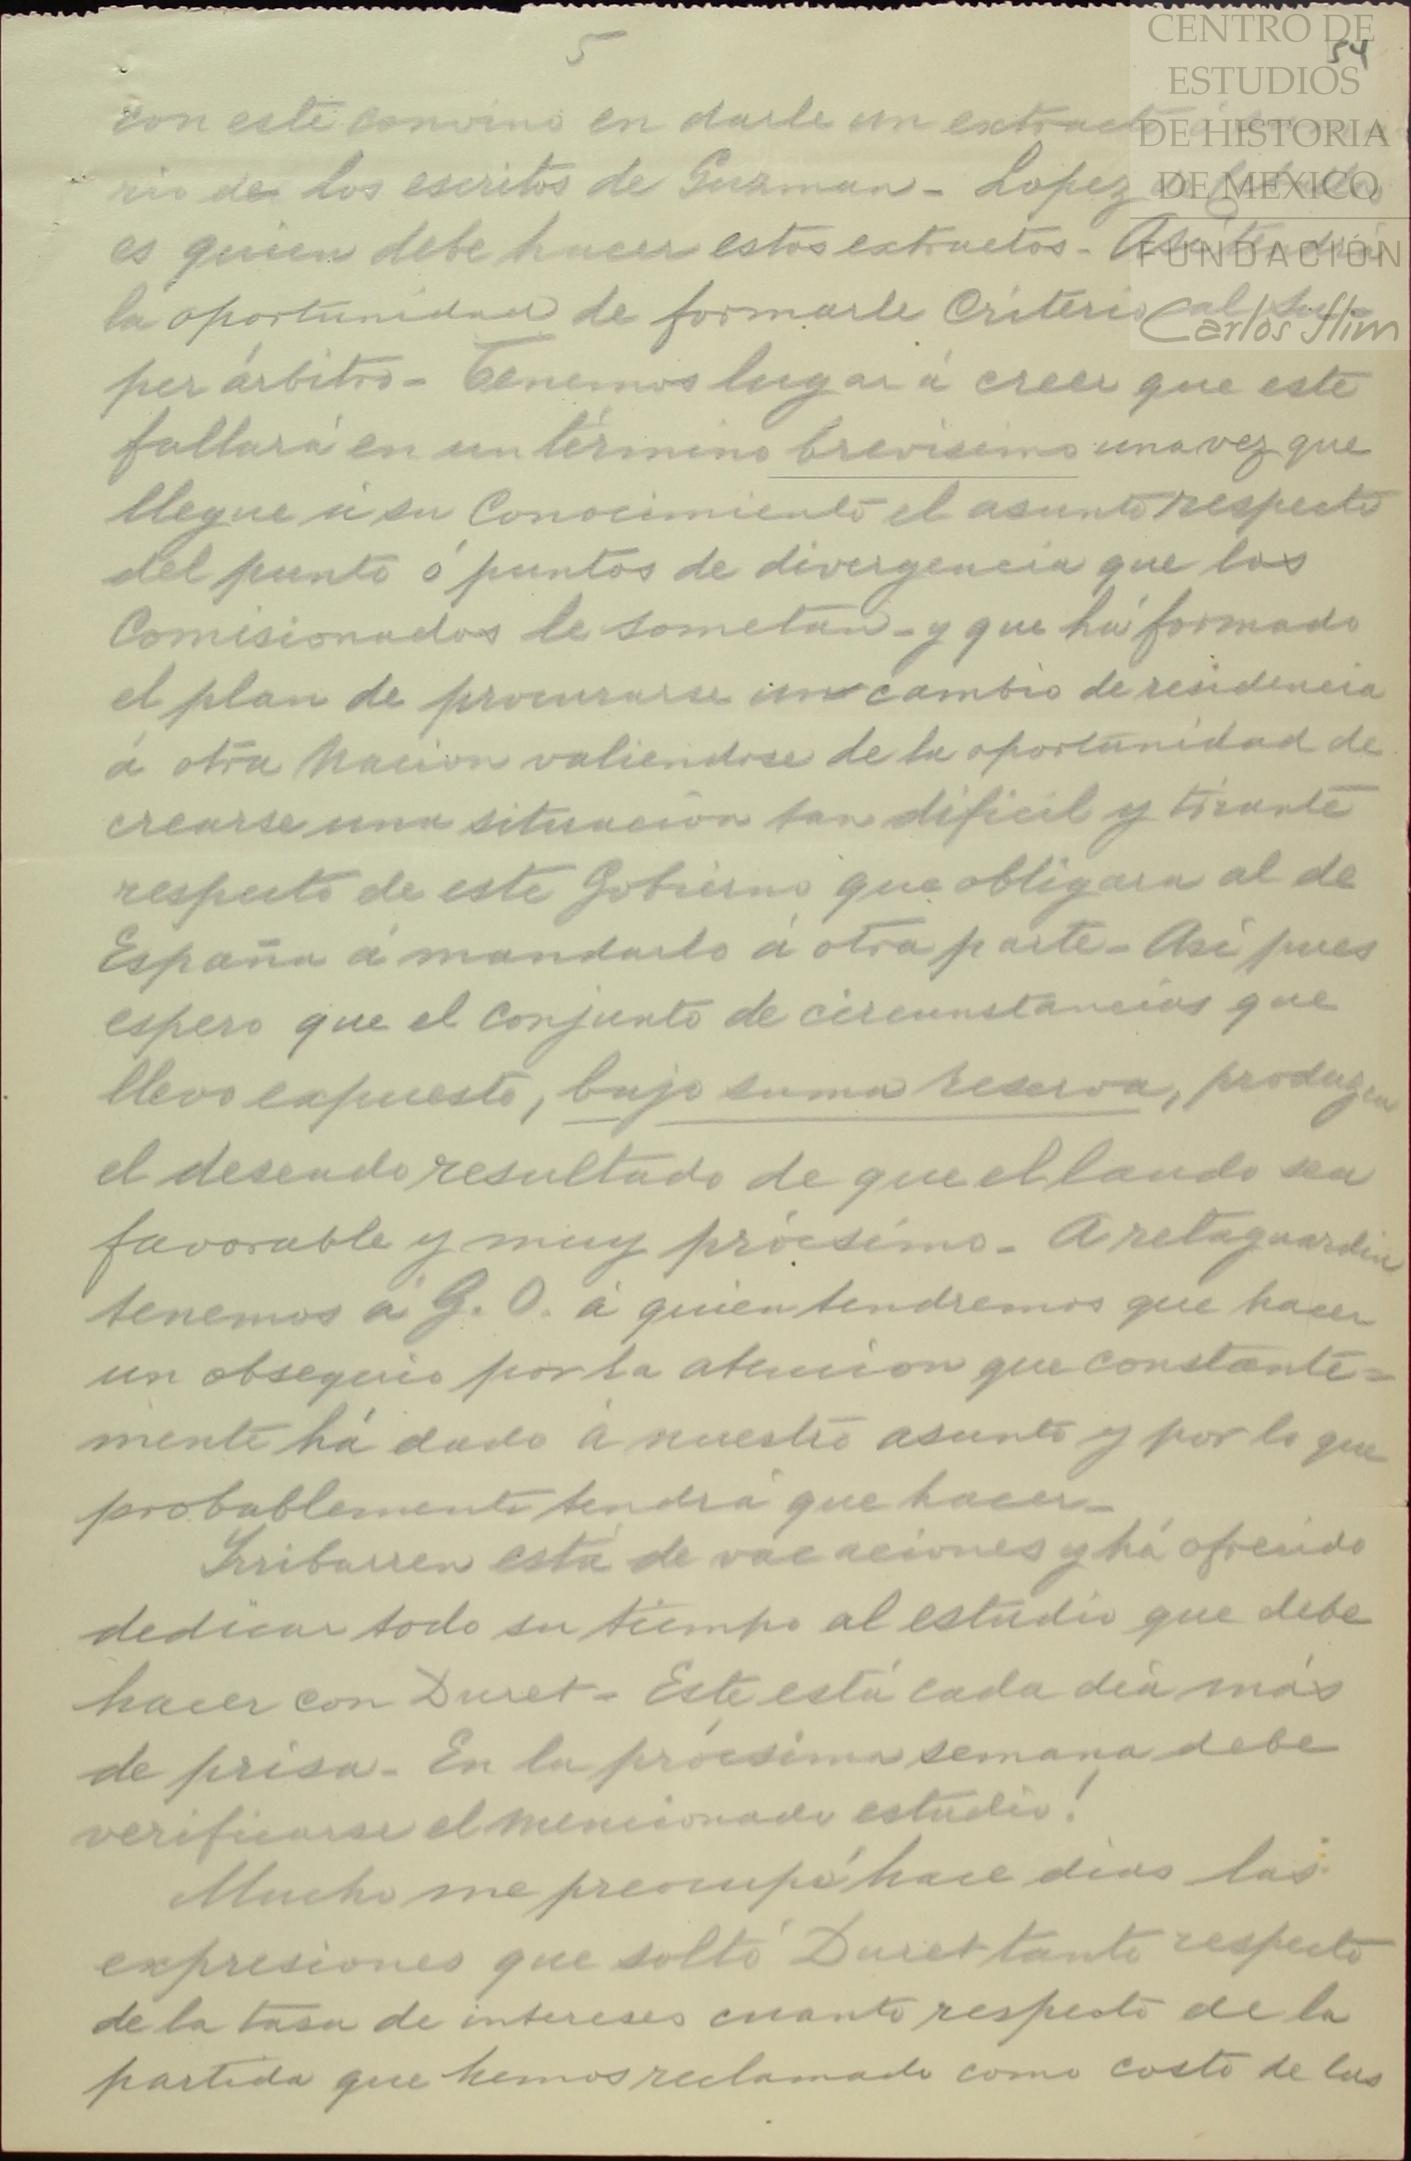 5
54
CENTRO DE
ESTUDIOS
DE HISTORIA
DE MEXICO
FUNDACIÓN
Carlos Slim
con este convino en darle un extracto á
rio de los escritos de Guzman - Lopez
es quien debe hacer estos extractos - Asi tendrá
la oportunidad de formarle Criterio al Su-
per árbitro - Tenemos lugar á creer que este
fallará en un término brevisimo una vez que
llegue á su Conocimiento el asunto respecto
del punto ó puntos de divergencia que los
Comisionados le sometan - y que há formado
el plan de procurarse un cambio de residencia
á otra Nacion valiendose de la oportunidad de
crearse una situacion tan dificil y tirante
respecto de este Gobierno que obligara al de
España á mandarlo á otra parte - Asi pues
espero que el conjunto de circunstancias que
llevo expuesto, bajo suma reserva, produzca
el deseado resultado de que el laudo sea
favorable y muy prócsimo - A retaguardia
tenemos á G. O. á quien tendremos que hacer
un obsequio por la atencion que constante=
mente há dado á nuestro asunto y por lo que
probablemente tendrá que hacer -
Yrribarren está de vacaciones y há ofrecido
dedicar todo su tiempo al estudio que debe
hacer con Duret - Este está cada dia más
de prisa - En la prócsima semana debe
verificarse el mencionado estudio!
Mucho me preocupó hace dias las
expresiones que soltó Duret tanto respecto
de la tasa de intereses cuanto respecto de la
partida que hemos reclamado como costo de las